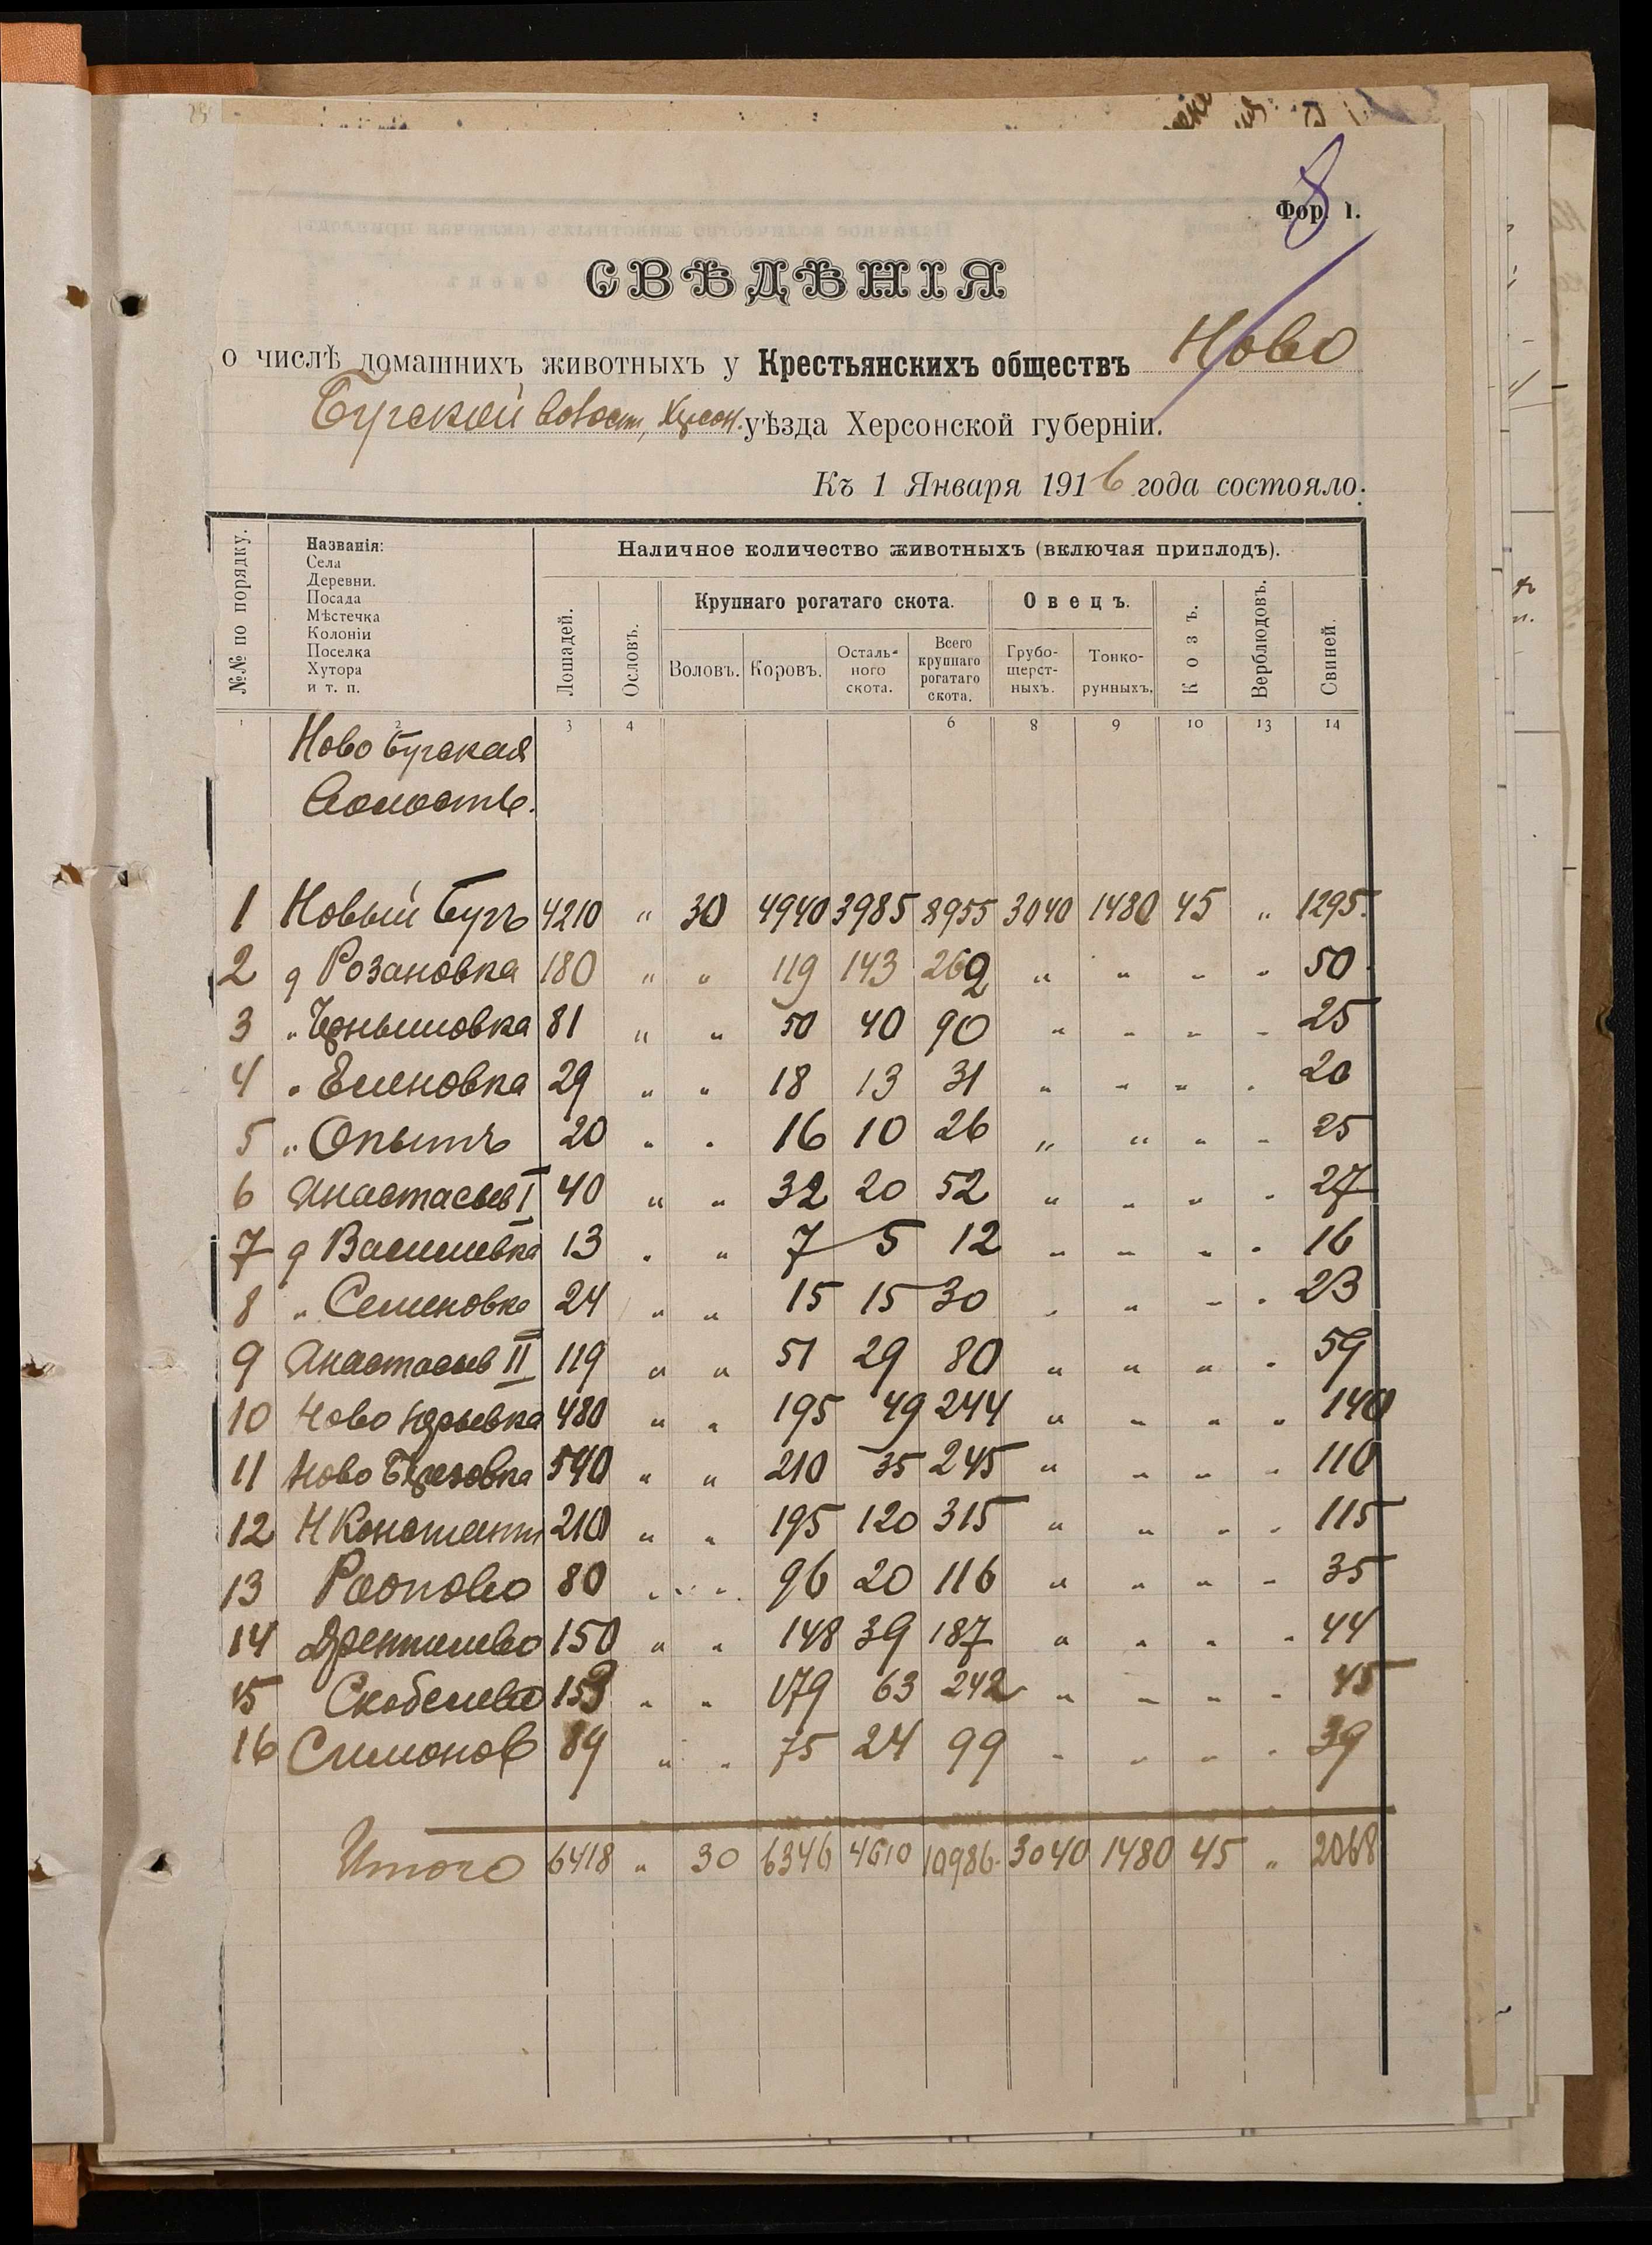 8
Фор. 1.
СВѢДѢНІЯ
о числѣ домашнихъ животныхъ у Крестьянскихъ обществъ Ново
Бугской волост, Херсон. уѣзда Херсонской губерніи.
Къ 1 Января 1916 года состояло:
№№ по порядку.
Названія:
Села
Деревни.
Посада
Мѣстечка
Колоніи
Поселка
Хутора
и т. п.
Наличное количество животныхъ (включая приплодъ).
Лошадей.
Ословъ.
Крупнаго рогатаго скота.
Воловъ. Коровъ. Осталь-ного скота. Всего крупнаго рогатаго скота.
Овецъ.
Грубо-шерст-ныхъ. Тонко-рунныхъ.
Козъ.
Верблюдовъ.
Свиней.
1 2 3 4 6 8 9 10 13 14
Ново Бугская
Волость.
1 Новый Бугъ 4210 " 30 4940 3985 8955 3040 1480 45 " 1295.
2 д Розановка 180 " " 119 143 262 " " " " 50
3 " Чернышовка 81 " " 50 40 90 " " " " 25
4 " Еленовка 29 " " 18 13 31 " " " " 20
5 " Опытъ 20 " " 16 10 26 " " " " 25
6 Анастасьев I 40 " " 32 20 52 " " " " 27
7 д Василиевка 13 " " 7 5 12 " " " " 16
8 " Семеновка 24 " " 15 15 30 " " " " 23
9 Анастасьев II 119 " " 51 29 80 " " " " 59
10 Ново Юрьевка 480 " " 195 49 244 " " " " 140
11 Ново Березовка 540 " " 210 35 245 " " " " 110
12 Н Константи 210 " " 195 120 315 " " " " 115
13 80 " " 96 20 116 " " " " 35
14 150 " " 148 39 187 " " " " 44
15 Скобелево 153 " " 179 63 242 " " " " 45
16 Симонов 89 " " 75 24 99 " " " " 39
Итого 6418 " 30 6346 4610 10986. 3040 1480 45 " 2068